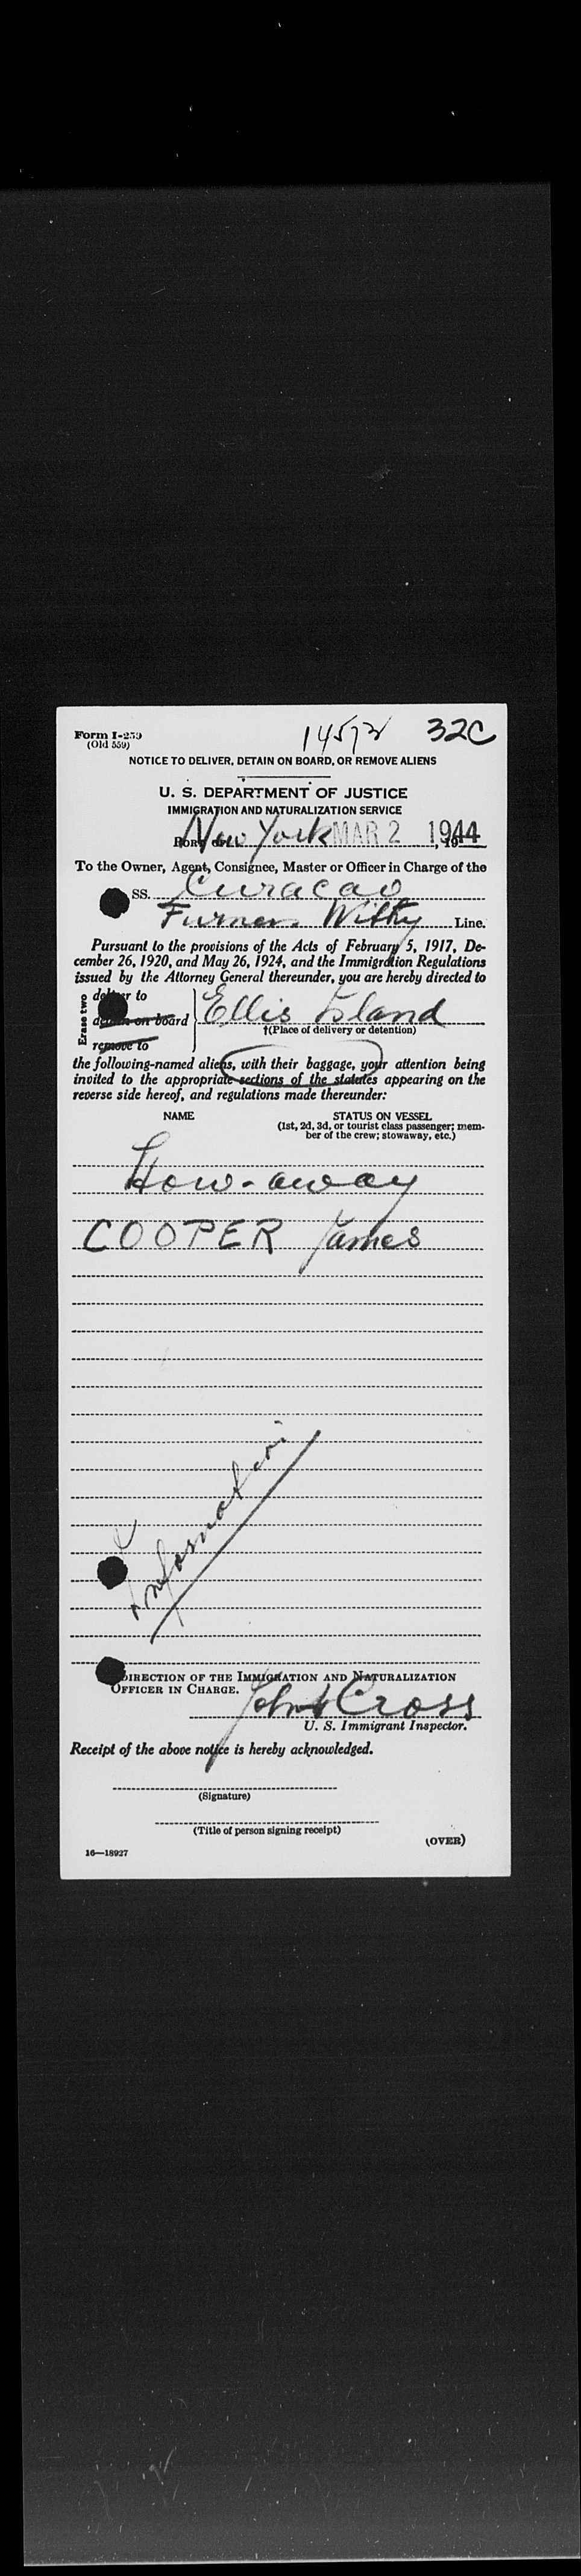 Form I-259
(Old 559)
14572 32C
NOTICE TO DELIVER, DETAIN ON BOARD, OR REMOVE ALIENS
U. S. DEPARTMENT OF JUSTICE
IMMIGRATION AND NATURALIZATION SERVICE
PORT OF New York MAR 2 1944, 19
To the Owner, Agent, Consignee, Master or Officer in Charge of the
SS. Curacao
Furness Withy Line.
Pursuant to the provisions of the Acts of February 5, 1917, De-
cember 26, 1920, and May 26, 1924, and the Immigration Regulations
issued by the Attorney General thereunder, you are hereby directed to
Erase two
deliver to
detain on board
remove to
Ellis Island
†(Place of delivery or detention)
the following-named aliens, with their baggage, your attention being
invited to the appropriate sections of the statutes appearing on the
reverse side hereof, and regulations made thereunder:
NAME STATUS ON VESSEL
(1st, 2d, 3d, or tourist class passenger; mem-
ber of the crew; stowaway, etc.)
Stow-away
COOPER James
Information
DIRECTION OF THE IMMIGRATION AND NATURALIZATION
OFFICER IN CHARGE.
John Cross
U. S. Immigrant Inspector.
Receipt of the above notice is hereby acknowledged.
(Signature)
(Title of person signing receipt)
(OVER)
16—18927